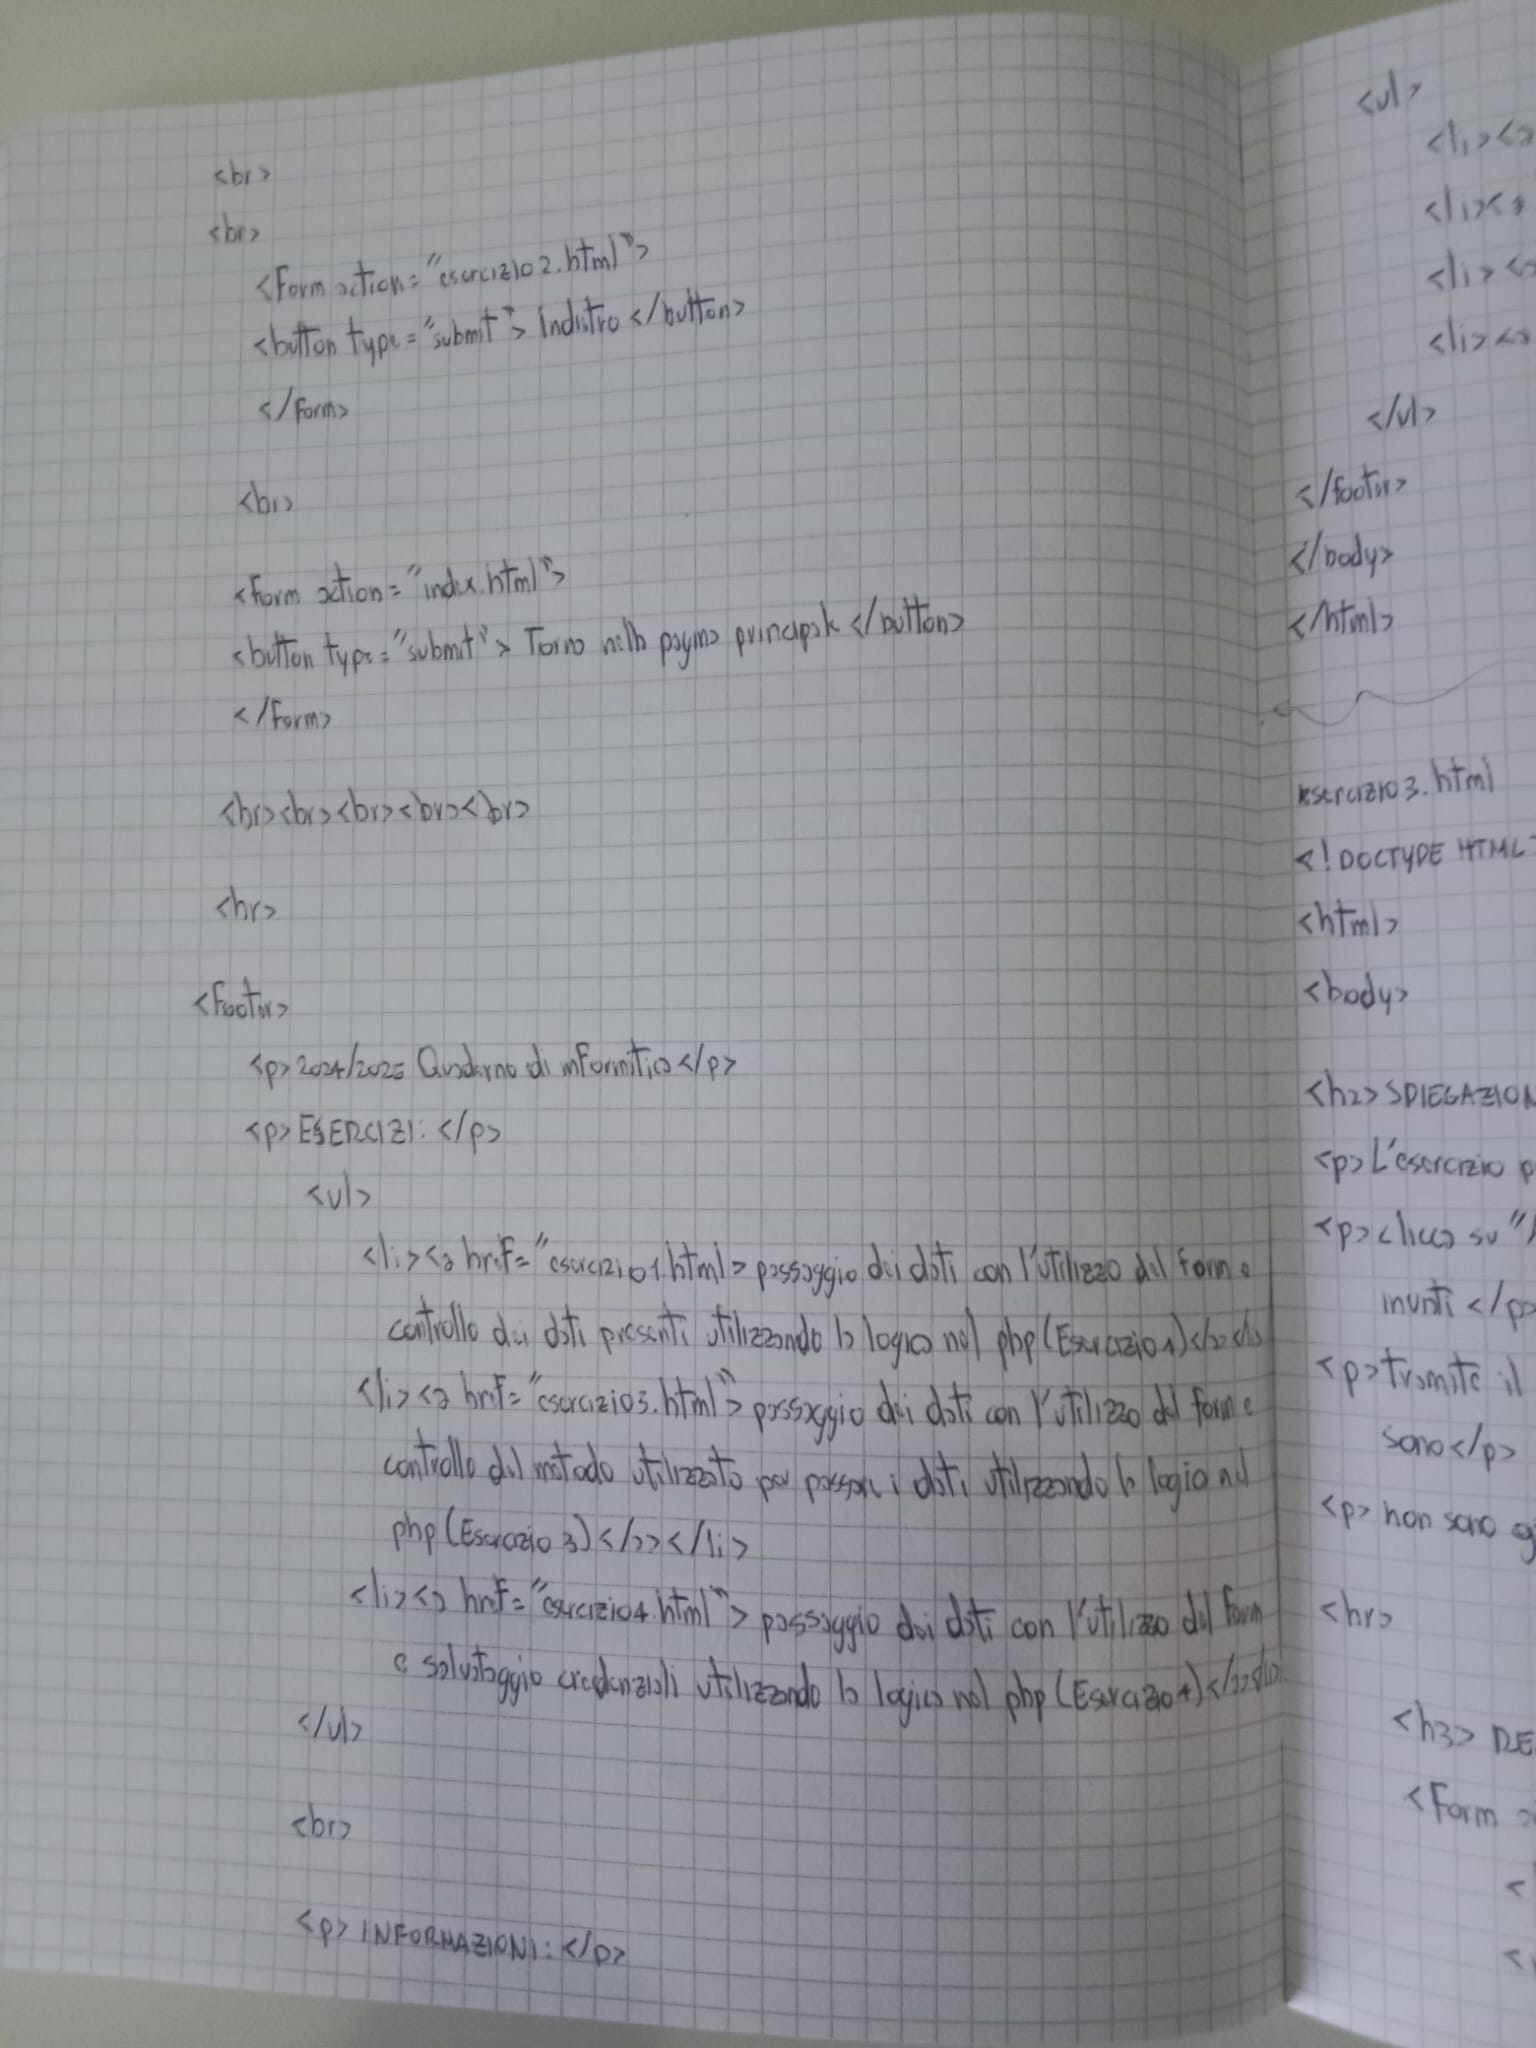 <br>
<br>
<form action="esercizio2.html">
<button type="submit"> Indietro </button>
</form>
<br>
<form action="index.html">
<button type="submit"> Torna nella pagina principale </button>
</form>
<br><br><br><br><br>
<hr>
<footer>
<p>2024/2025 Quaderno di informatica</p>
<p>ESERCIZI:</p>
<ul>
<li><a href="esercizio1.html> passaggio dei dati con l'utilizzo del form e
controllo dei dati presenti utilizzando la logica nel php (Esercizio 1)</a></li>
<li><a href="esercizio3.html"> passaggio dei dati con l'utilizzo del form e
controllo del metodo utilizzato per passare i dati utilizzando la logica nel
php (Esercizio 3)</a></li>
<li><a href="esercizio4.html"> passaggio dei dati con l'utilizzo del form
e salvataggio credenziali utilizzando la logica nel php (Esercizio 4)</a></li>
</ul>
<br>
<p> INFORMAZIONI: </p>
<ul>
<li><a
<li><a
<li><a
<li><a
</ul>
</footer>
</body>
</html>
esercizio3.html
<!DOCTYPE HTML>
<html>
<body>
<h2> SPIEGAZION
<p> L'esercizio p
<p> clicca su "
</p>
<p> tramite il
sono</p>
<p> non sono
<hr>
<h3> RE
<form
<
<